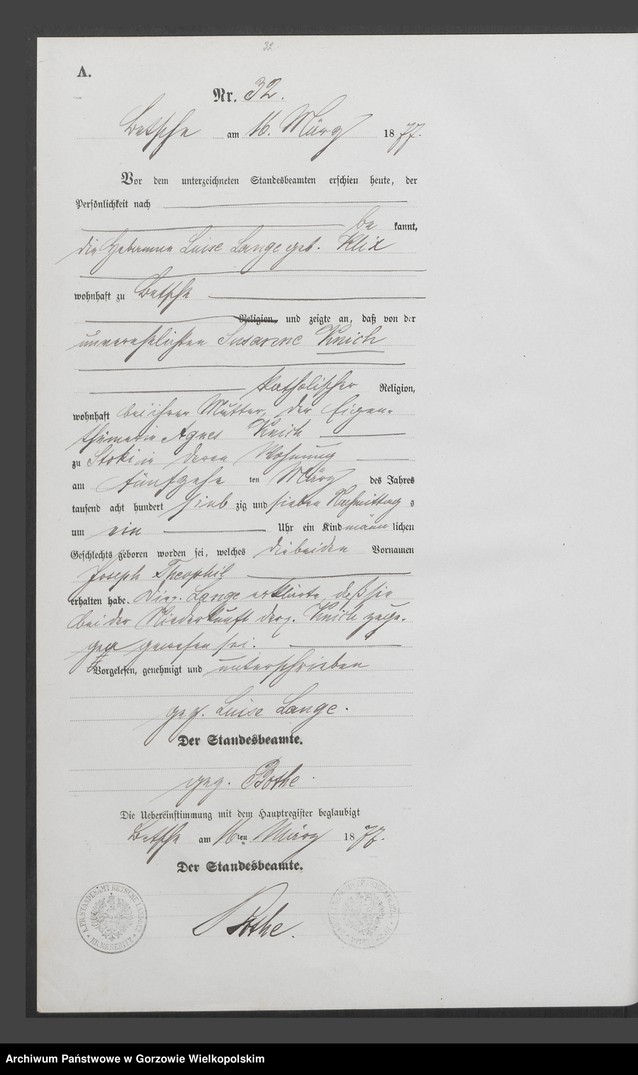 32.
A.
Nr. 32.
Betsche am 16. März 1877.
Vor dem unterzeichneten Standesbeamten erschien heute, der
Persönlichkeit nach
be kannt,
die Hebamme Luise Lange geb. Klix
wohnhaft zu Betsche
Religion, und zeigte an, daß von der
unverehelichten Susanne Knich
katholischer Religion,
wohnhaft bei ihrer Mutter, der Eigen-
thümerin Agnes Knich
zu Stoki in deren Wohnung
am fünfzehn ten März des Jahres
tausend acht hundert sieb zig und sieben Nachmittag s
um ein Uhr ein Kind männ lichen
Geschlechts geboren worden sei, welches die beiden Vornamen
Joseph Theophil
erhalten habe. Die Lange erklärte, daß sie
bei der Niederkunft der Knich zuge-
gen gewesen sei.
Vorgelesen, genehmigt und unterschrieben
gez. Luise Lange.
Der Standesbeamte.
gez. Bothe.
Die Uebereinstimmung mit dem Hauptregister beglaubigt
Betsche am 16ten März 1877.
Der Standesbeamte.
Bothe.
Archiwum Państwowe w Gorzowie Wielkopolskim